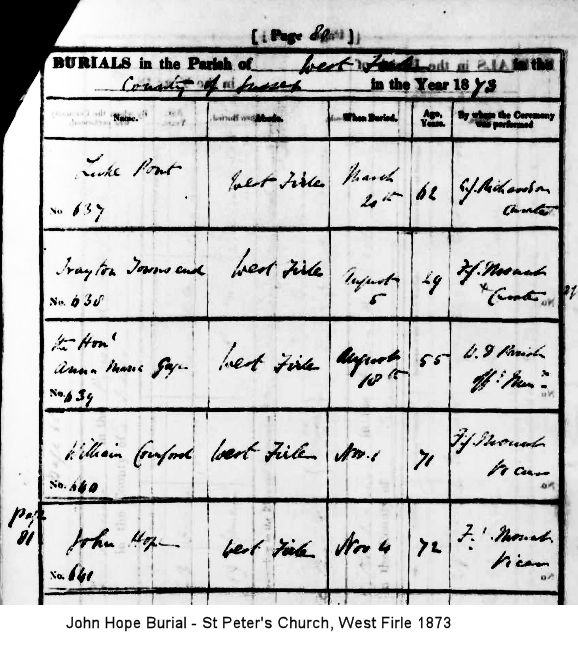 [ Page 80 ]
BURIALS in the Parish of West Firle in the
County of Sussex in the Year 1873
Name. Abode. When Buried. Age, Years. By whom the Ceremony was performed
Luke Pont West Firle March 20th 62 Richardson Curate
No. 637
Drayton Townsend West Firle August 5 29
No. 638
The Honl
Anna Maria Gage West Firle August 18th 55 W. D. Parish offg Minr
No. 639
William Cornford West Firle Nov. 1 71 Vicar
No. 640
page 81
John Hope West Firle Nov 4 72 Vicar
No. 641
John Hope Burial - St Peter's Church, West Firle 1873